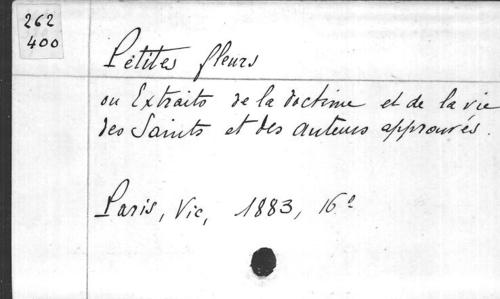 262
400
Petites fleurs
ou Extraits de la doctrine et de la vie
des Saints et des auteurs approuvés.
Paris, Vic, 1883, 16º